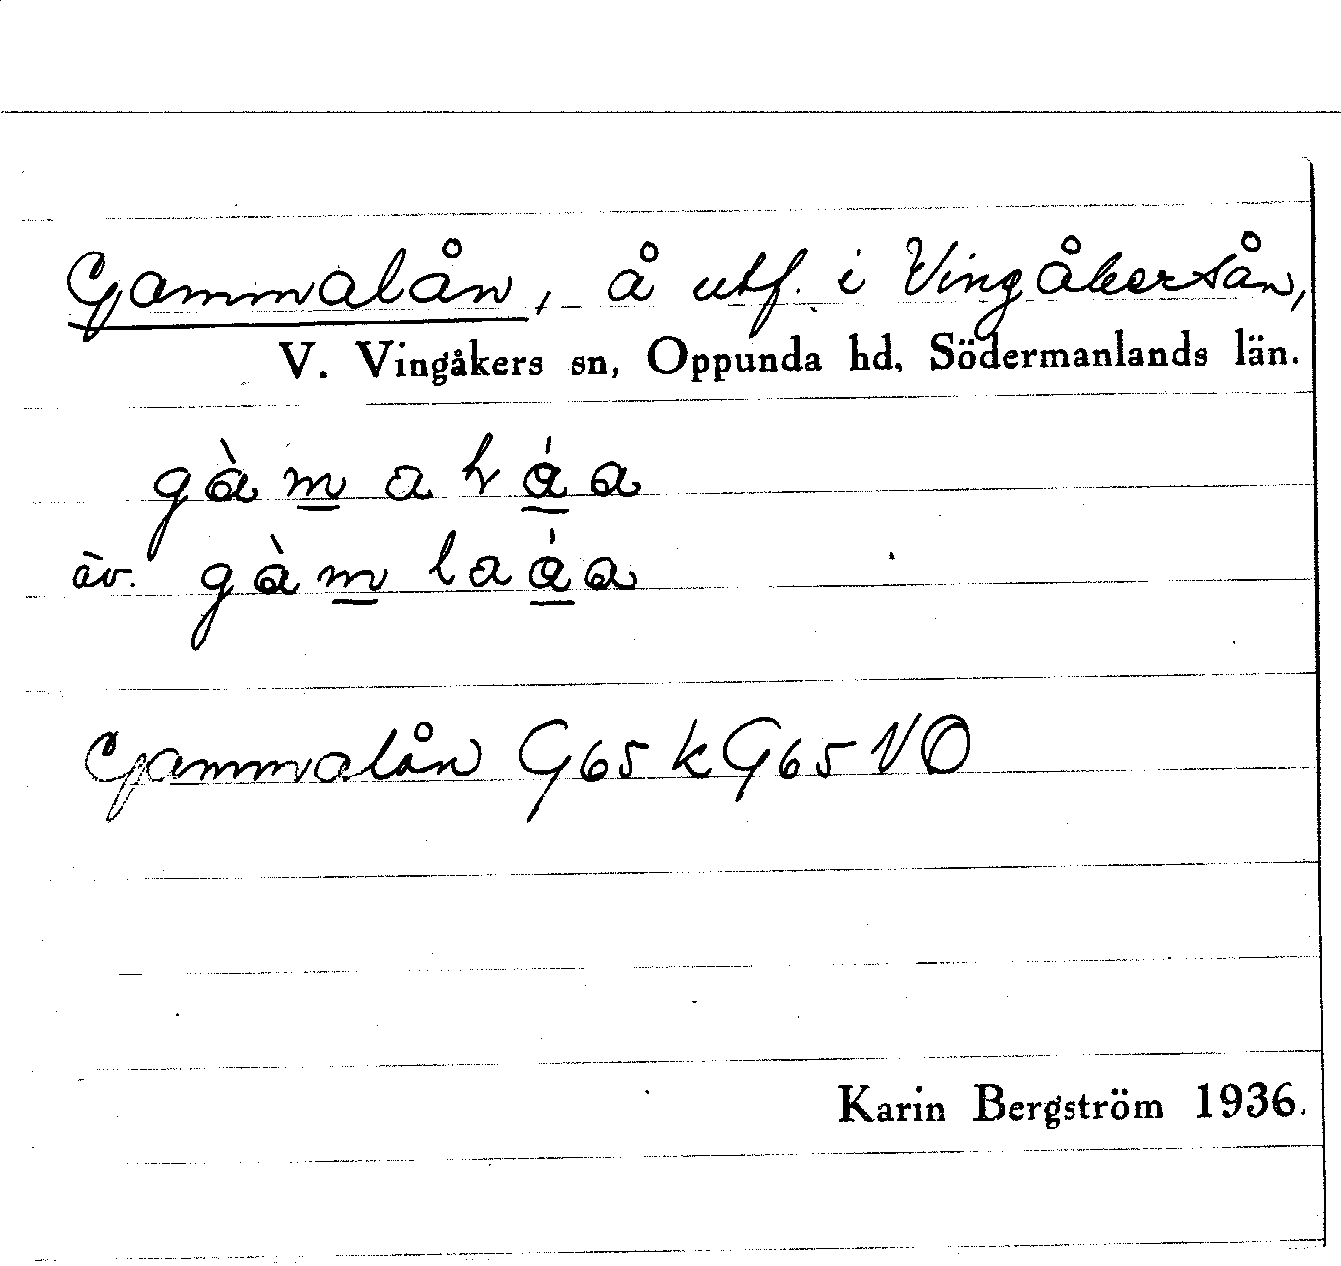 Gammalån, å utf. i Vingåkersån,
V. Vingåkers sn, Oppunda hd, Södermanlands län.
äv.
Gammalån G65 k G65 NO
Karin Bergström 1936.